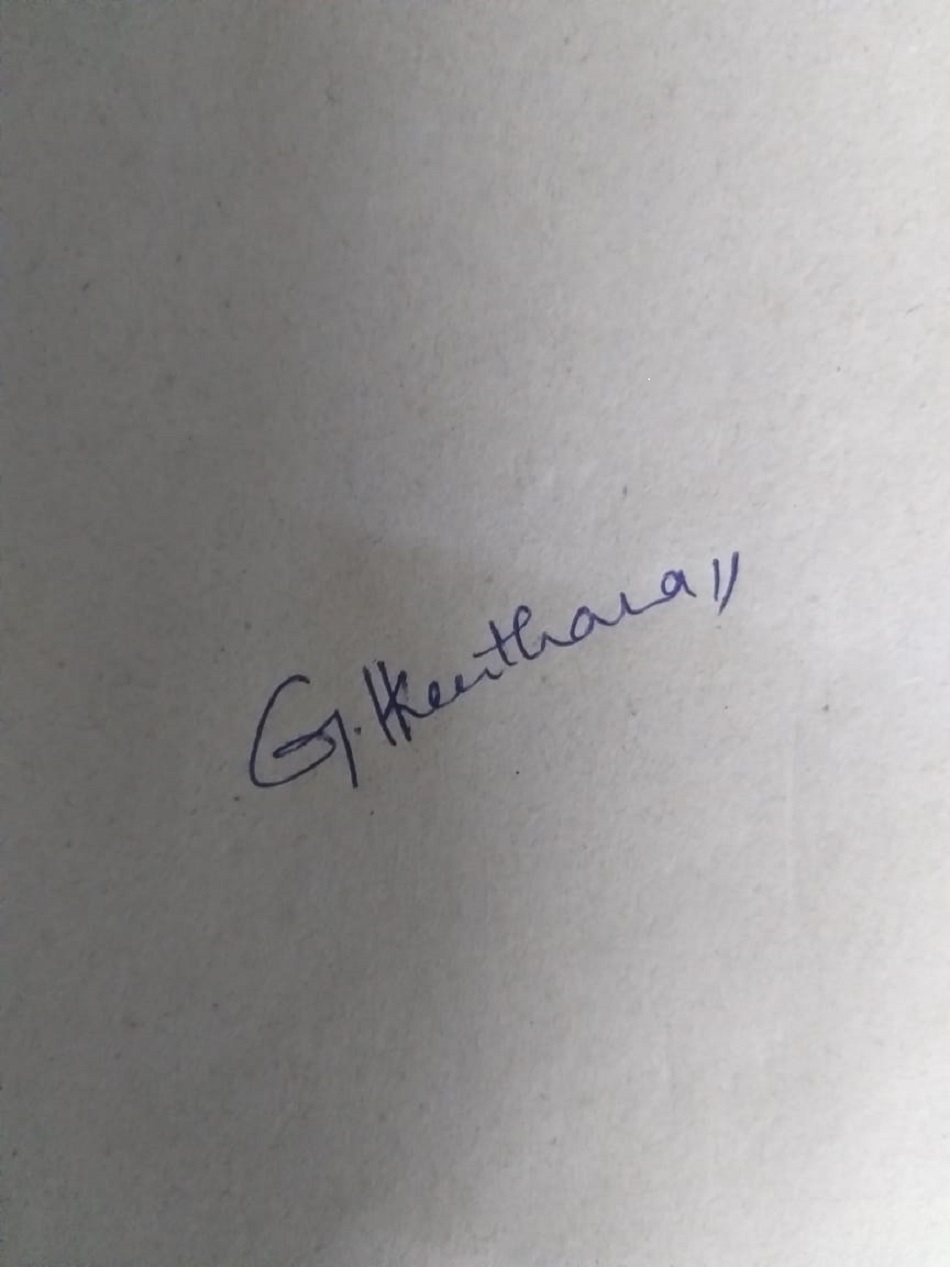 G. Keerthana